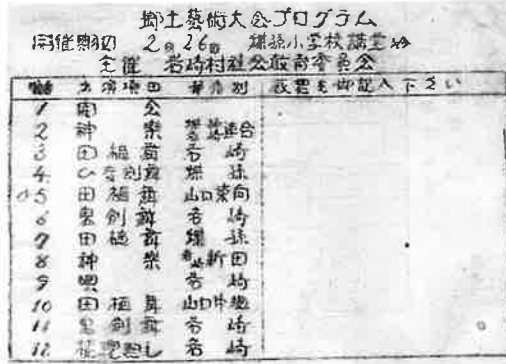 郷土藝術大会プログラム
開催期日 2月26日 煤孫小学校講堂
主催 岩崎村社会教育委員会
番 上演項目 部落別 感想を御記入下さい
1 開会
2 神楽 連合
3 田植舞 岩崎
4 剣舞 煤孫
5 田植舞 山口東向
6 鬼剣舞 岩崎
7 田植舞 煤孫
8 神楽 新田
9 唄 岩崎
10 田植舞 山口
11 鬼剣舞 岩崎
12 岩崎